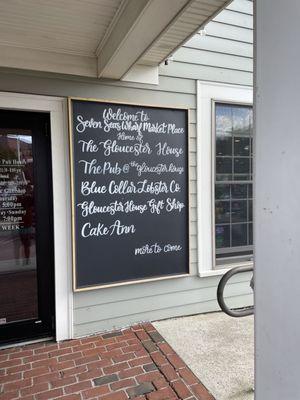 Welcome to
Seven Seas Wharf Market Place
Home of
The Gloucester House
The Pub @ the gloucester house
Blue Collar Lobster Co
Gloucester House Gift Shop
Cake Ann
more to come
5:00pm
7:00pm
WEEK